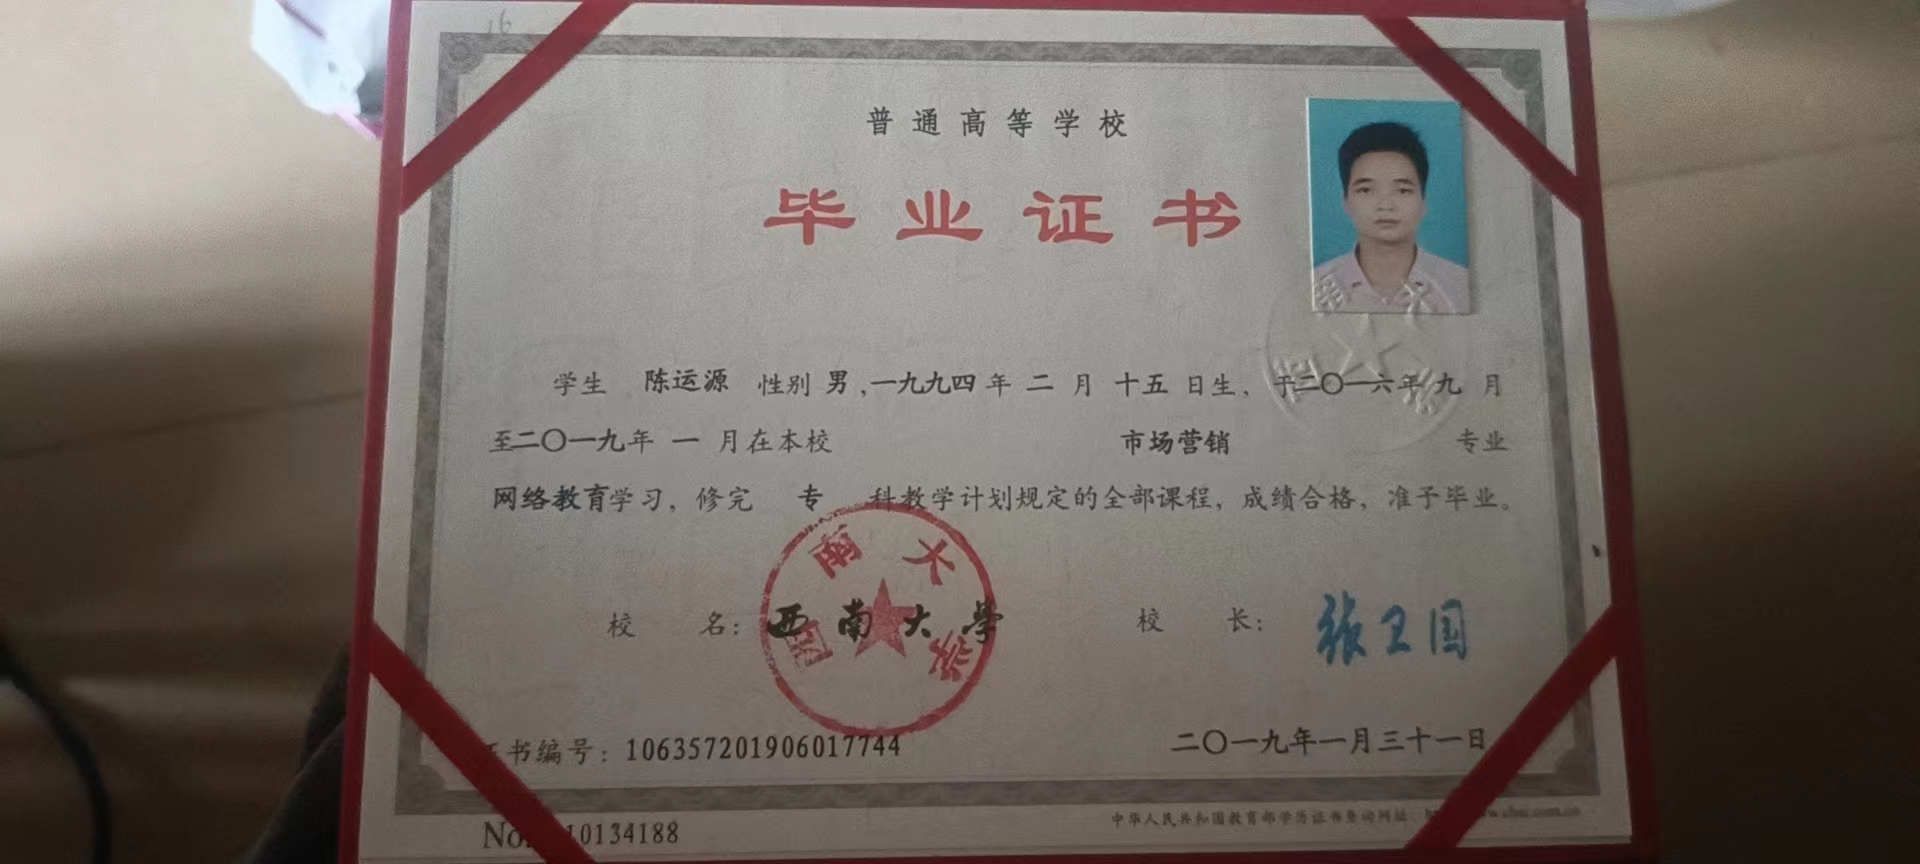 16
普通高等学校
毕业证书
学生 陈运源 性别 男,一九九四年 二 月 十五 日生,于二〇一六年 九 月
至二〇一九年 一 月在本校 市场营销 专业
网络教育学习,修完 专 科教学计划规定的全部课程,成绩合格,准予毕业。
校 名:西南大學
西南大学
校 长:张卫国
书编号:106357201906017744
二〇一九年一月三十一日
No. 10134188
中华人民共和国教育部学历证书查询网址: